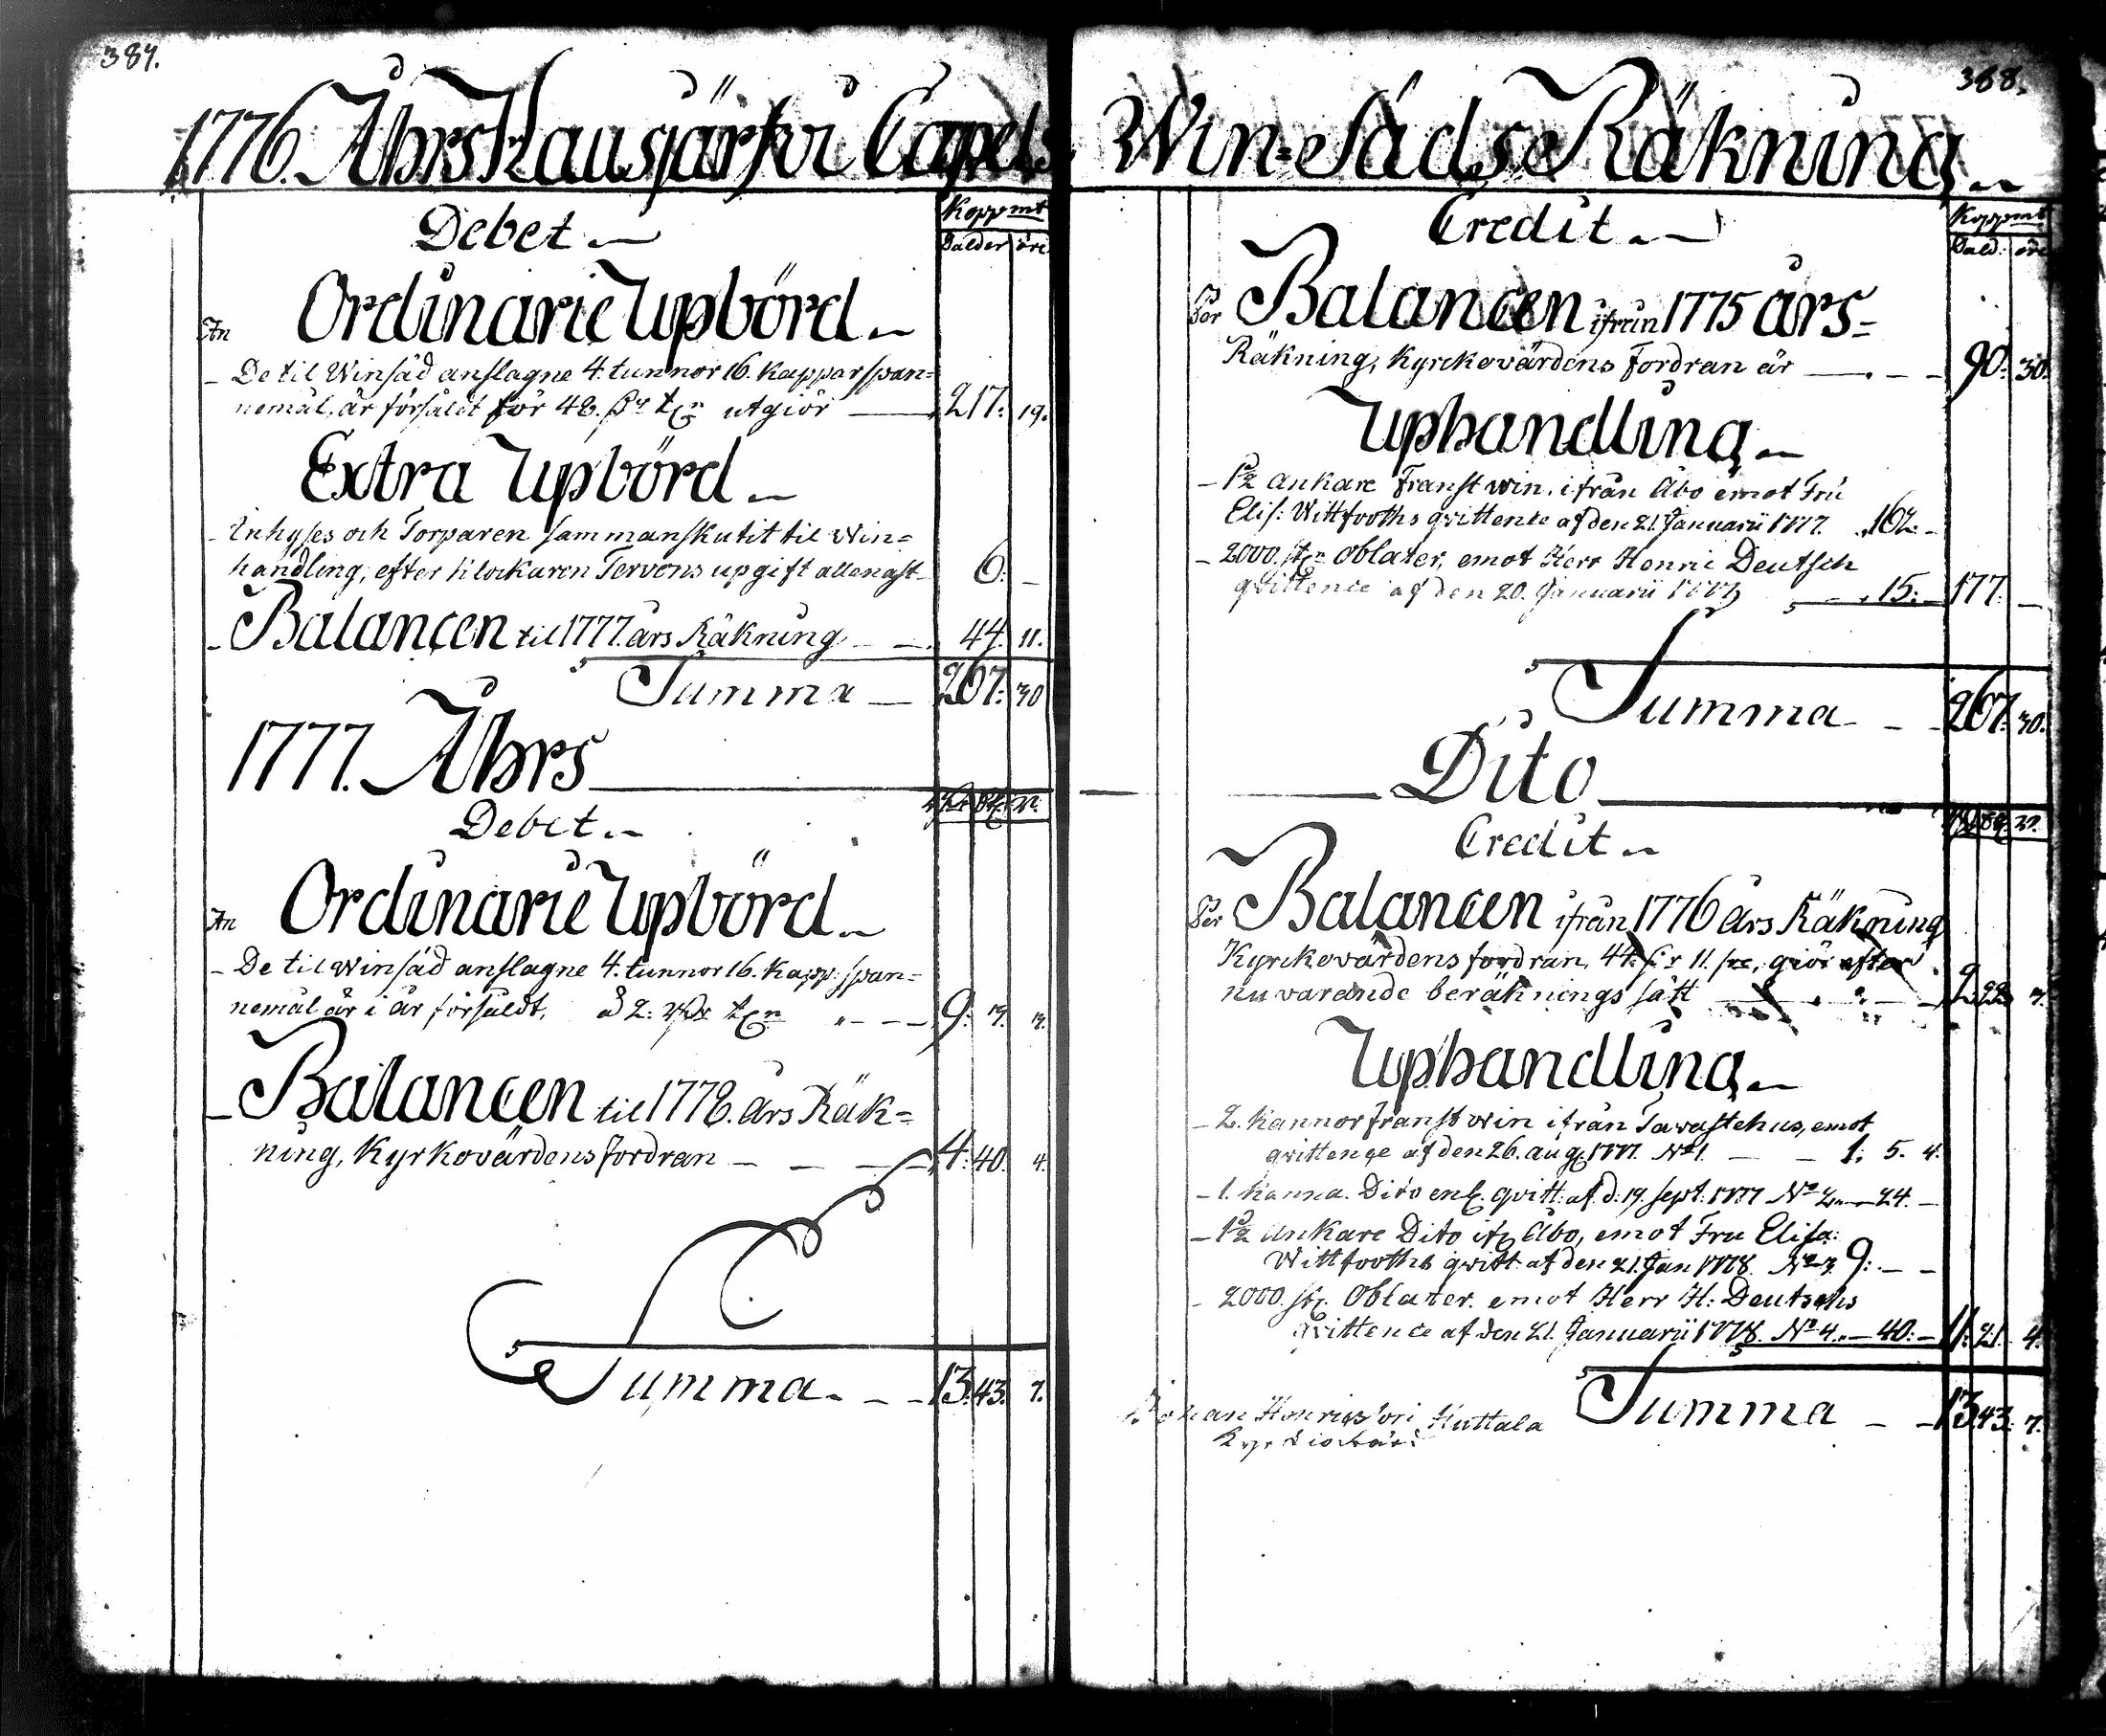 387.
1776. Åhrs Hausjärfvi Capels
Debet
Koppmt
Daler öre
An Ordinarie Upbörd
De til Winsäd anslagne 4. tunnor 16. kappar span=
nemål, är försåldt för 48. tn utgiör 217: 19.
Extra Upbörd
Inhyses och Torparen sammanskutit til Win=
handling, efter klockaren Tervens upgift allenast 6: —
Balancen til 1777. års Räkning 44. 11.
Summa 267: 30
1777. Åhrs
Debet
An Ordinarie Upbörd
De til Winsäd anslagne 4. tunnor 16. kapp: span=
nemål är i år försåldt, à 2: tn 9:
Balancen til 1778. års Räk=
ning, Kyrkovärdens fordran 4: 40. 4.
Summa 13: 43. 7.
388.
Win-Säds Räkning
Credit
Koppmt
Dald. öre
Per Balancen ifrån 1775 års=
Räkning, Kyrckovärdens fordran är 90: 30.
Uphandling
1½ ankare Franst win, ifrån Åbo emot Fru
Elis: Wittfooths qvittence af den 21. Januarii 1777. 162: —
2000. st. Oblater, emot Herr Henric Deutsch
qvittence af den 20. Januarii 1777 15: 177: —
Summa 267: 30.
Dito
Credit
Per Balancen ifrån 1776 års Räkning
Kyrckovärdens fordran, 44. 11. giör efter
nu varande beräknings sätt 2: 22.
Uphandling
2. kannor franst win ifrån Tawastehus, emot
qvittence af den 26. aug. 1777. No 1. 1: 5. 4.
1. kanna Dito enl. qvitt: af d: 19. sept. 1777 No 2. 24. —
1½ ankare Dito ifr. Åbo, emot Fru Elisa:
Wittfooths qvitt. af den 21. Jan 1778. No 3. 9: — —
2000. st. Oblater emot Herr H: Deutschs
qvittence af den 21. Januarii 1778. No 4. — 40: — 11: 21. 4.
Summa 13: 43: 7.
Johan Henricsson Huttala